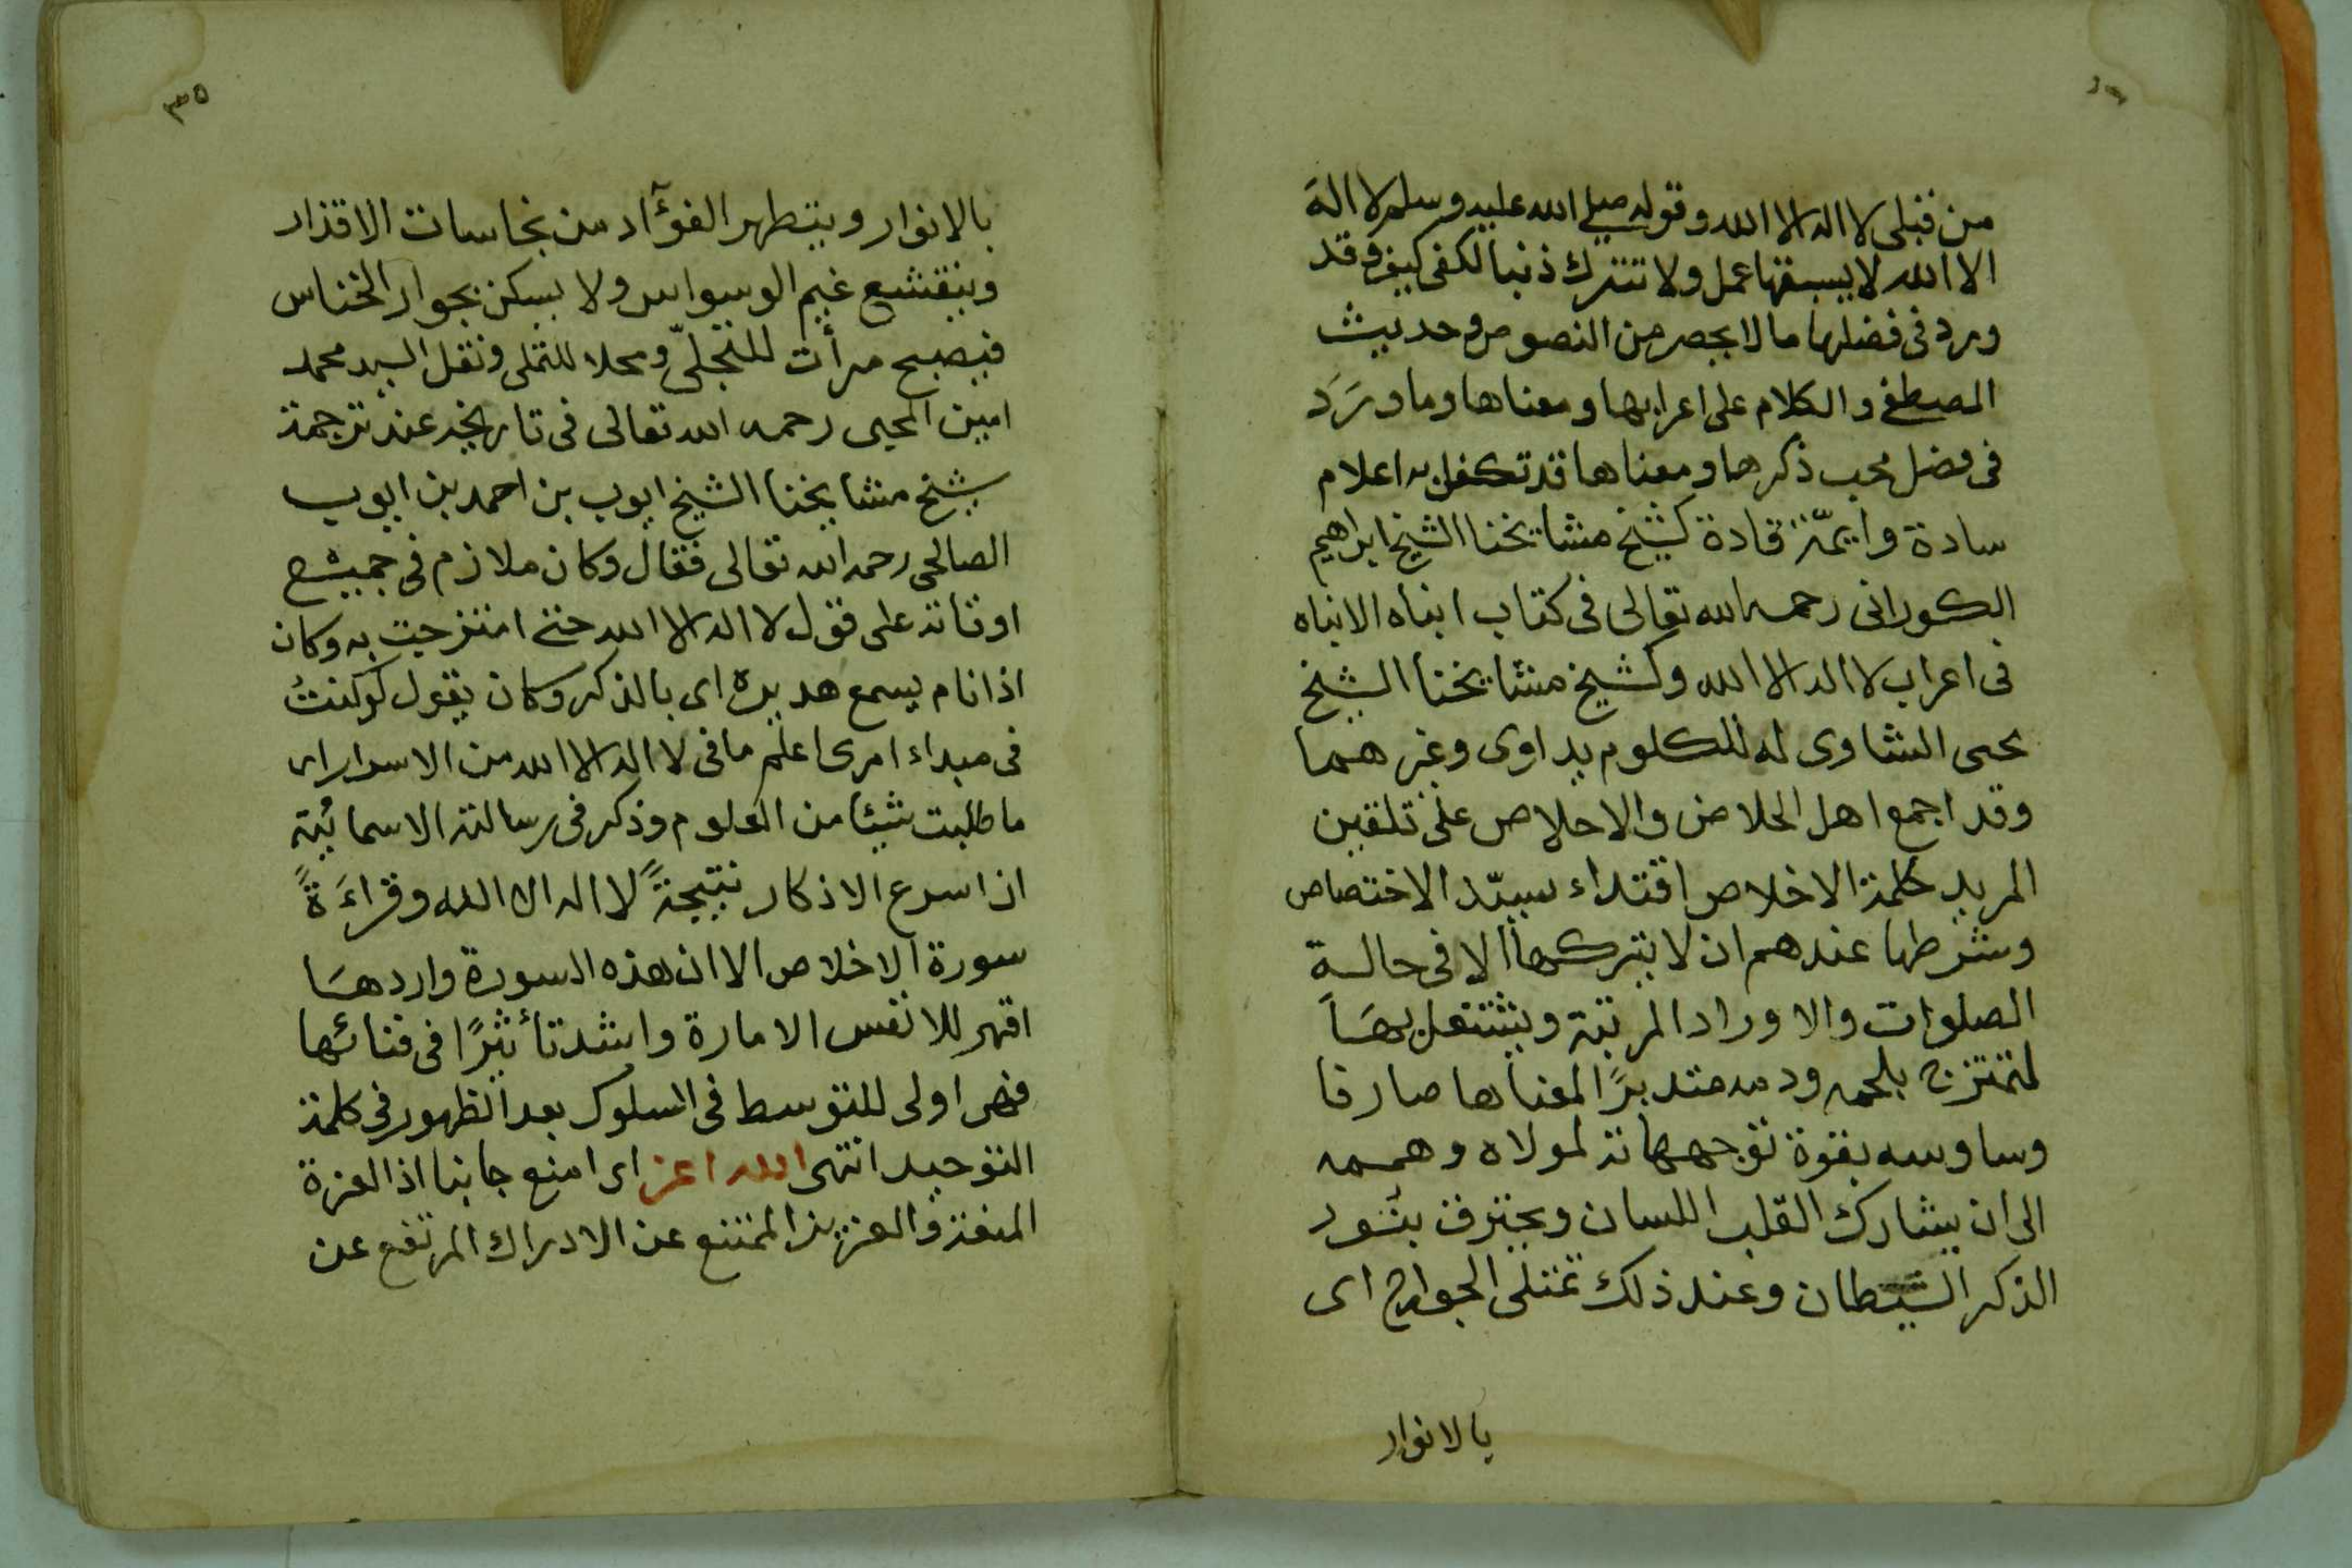 من قبلي لا اله الا الله وقوله صلى الله عليه وسلم لا اله
الا الله لا يسبقها عمل ولا تترك ذنبا لكفى كيف وقد
ورد في فضلها ما لا يحصر من النصوص وحديث
المصطفى والكلام على اعرابها ومعناها وما وَرَد
في فضل محب ذكرها ومعناها قد تكفل به اعلام
سادة وايمّة قادة كشيخ مشايخنا الشيخ ابراهيم
الكوراني رحمه الله تعالى في كتاب انباه الانباه
في اعراب لا اله الا الله وكشيخ مشايخنا الشيخ
يحيى الشاوى له للكلوم يداوى وغيرهما
وقد اجمع اهل الخلاص والاخلاص على تلقين
المريد كلمة الاخلاص اقتداء بسيّد الاختصاص
وشرطها عندهم ان لا يتركها الا في حالة
الصلوات والاوراد المرتبة ويشتغل بهَا
لتمتزج بلحمه ودمه متدبرًا لمعناها صارفا
وساوسه بقوة توجهاته لمولاه وهممه
الى ان يشارك القلب اللسان ويحترق بنُور
الذكر الشيطان وعند ذلك تمتلى الجوارح اى
بالانوار
٣٥
بالانوار ويتطهر الفوآد من نجاسات الاقذار
وينقشع غيم الوسواس ولا يسكن بجوار الخناس
فيصبح مرأت للتجلّى ومحلا للتملى ونقل السيد محمد
امين المحبى رحمه الله تعالى في تاريخه عند ترجمة
شيخ مشايخنا الشيخ ايوب بن احمد بن ايوب
الصالحى رحمه الله تعالى فقال وكان ملازم في جميع
اوقاته على قول لا اله الا الله حتى امتزجت به وكان
اذا نام يسمع هديره اى بالذكر وكان يقول لو كنتُ
في مبداء امرى اعلم ما في لا اله الا الله من الاسرار
ما طلبت شيئا من العلوم وذكر في رسالته الاسمائية
ان اسرع الاذكار نتيجةً لا اله الا الله وقراءَةً
سورة الاخلاص الا ان هذه السورة واردهَا
اقهر للانفس الامارة واشد تأثيرًا في فنائها
فهى اولى للتوسط في السلوك بعد الظهور في كلمة
التوحيد انتهى الله اعز اى امنع جانبا اذ العزة
المنعة والعزيز الممتنع عن الادراك المرتفع عن